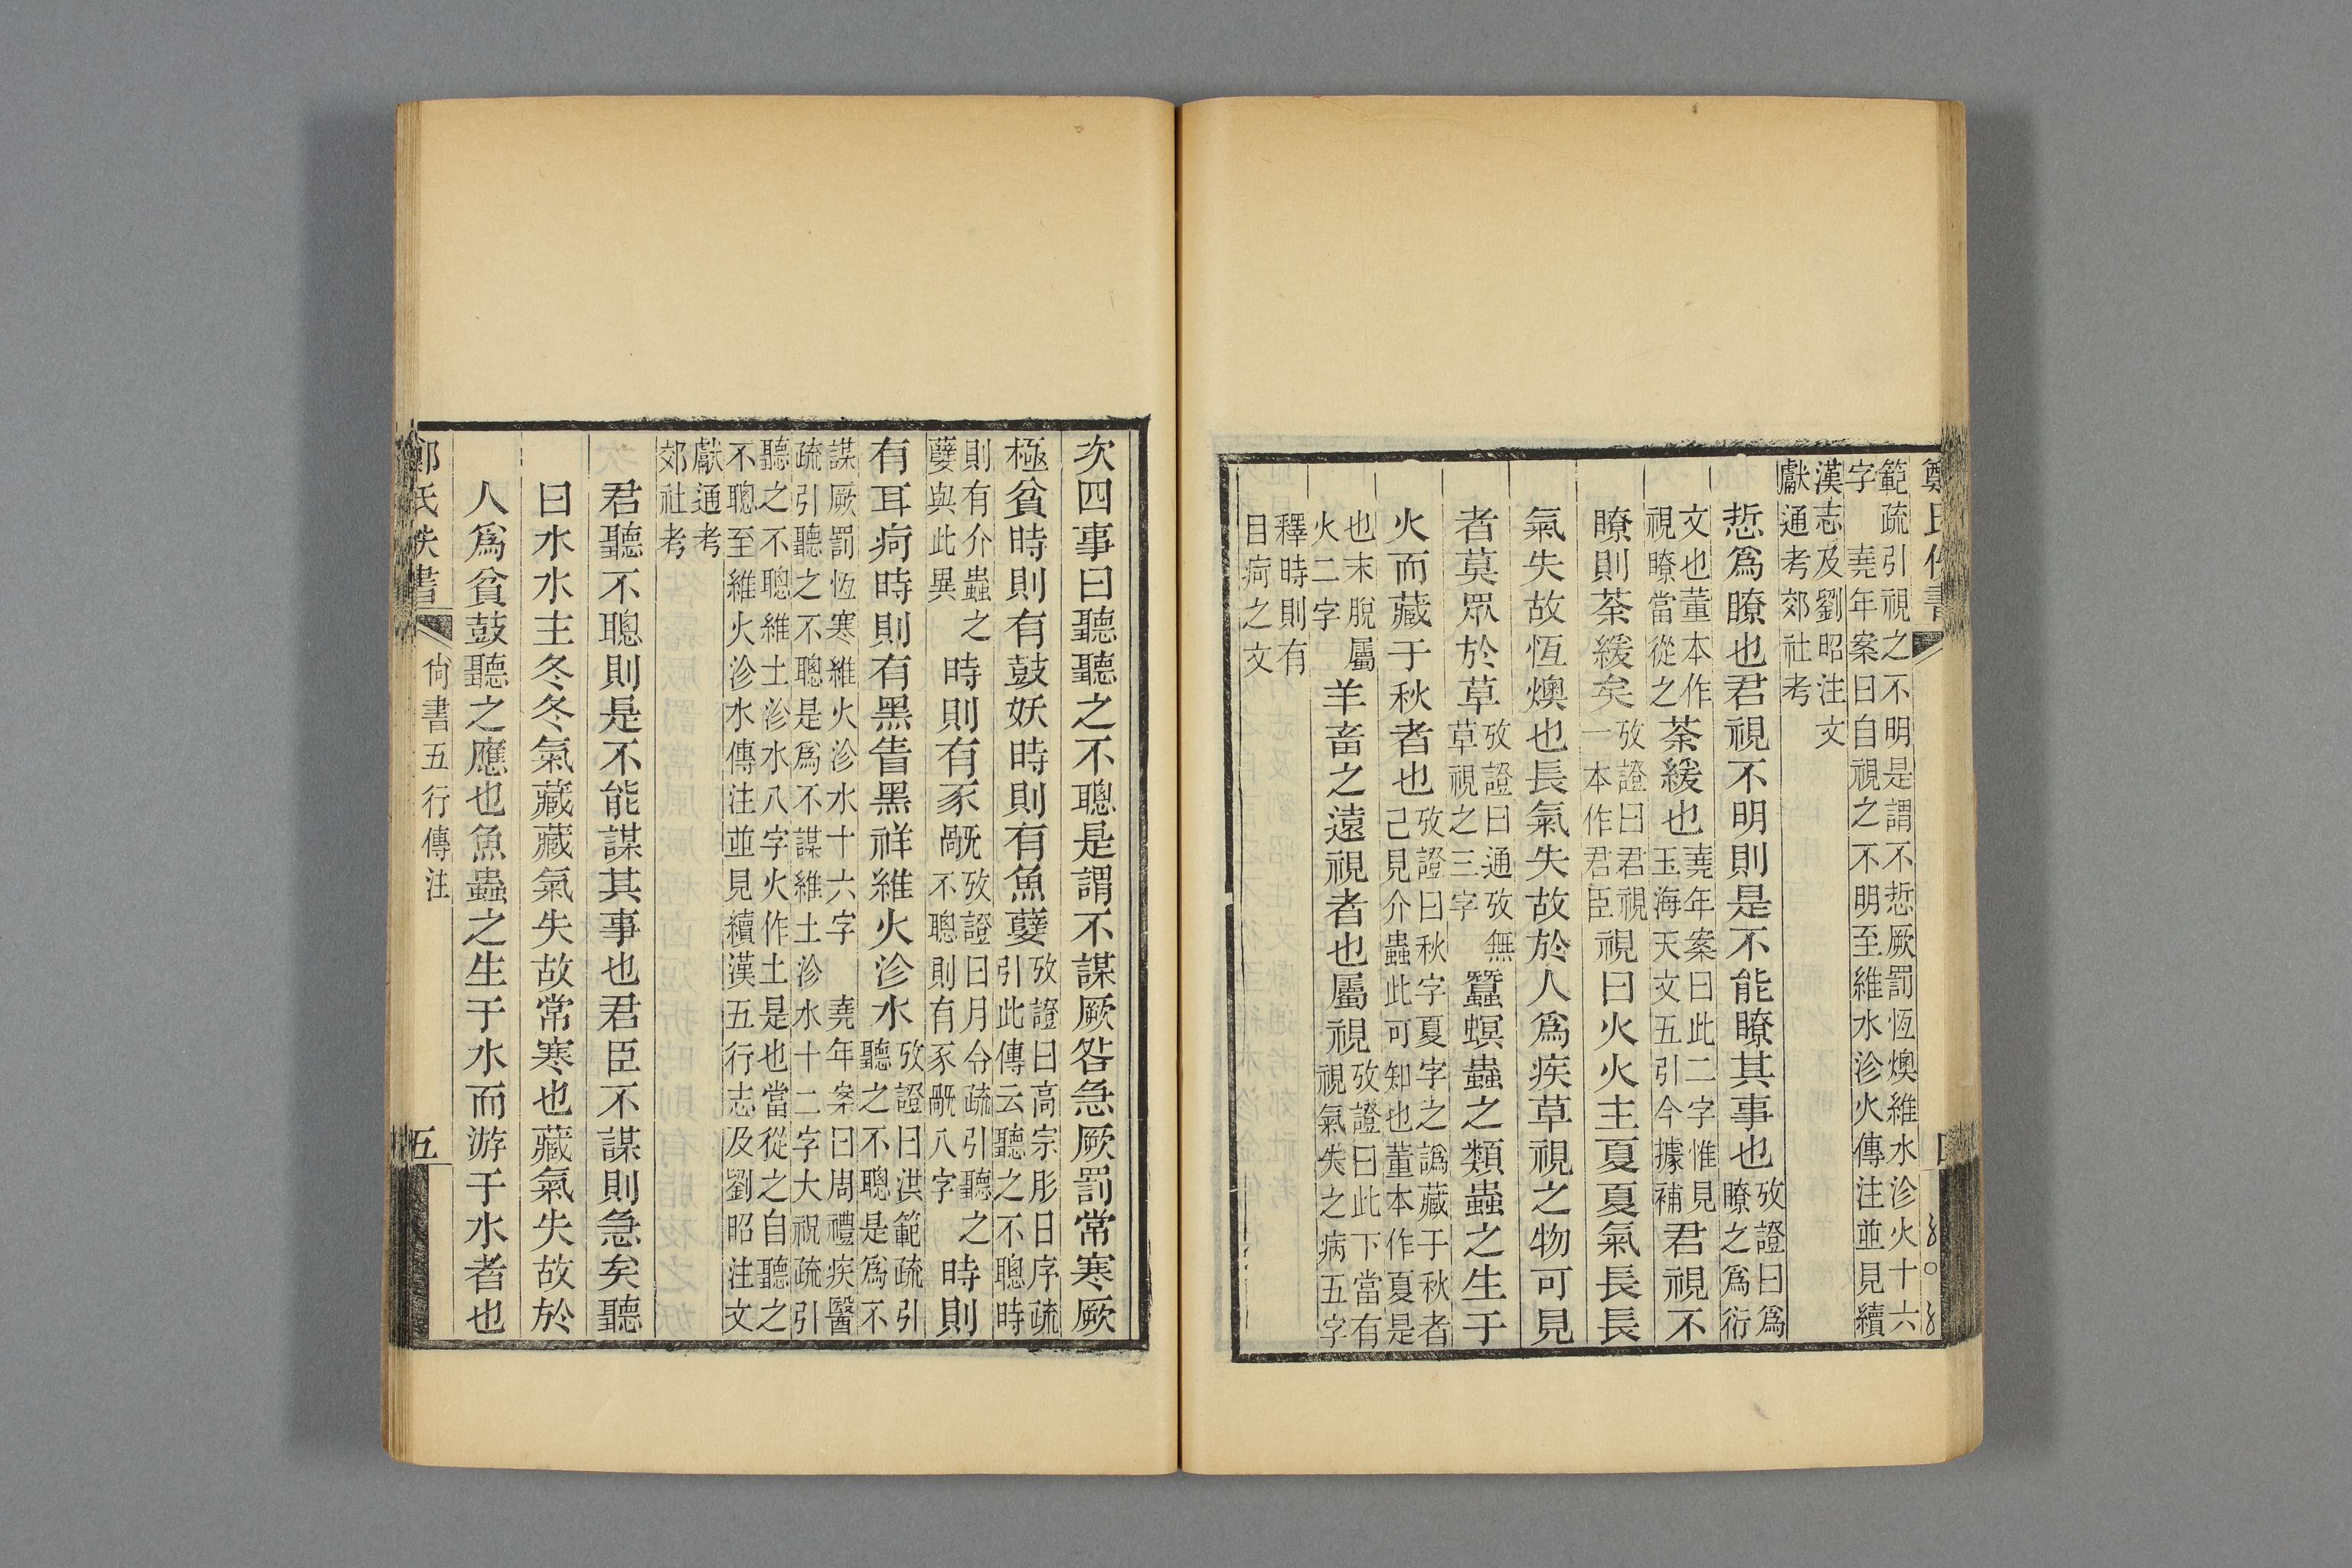 鄭氏佚書
範疏引視之不明是謂不悊厥罰恆燠維水沴火十六
字　堯年案曰自視之不明至維水沴火傳注並見續
漢志及劉昭注文
獻通考郊社考
悊爲瞭也君視不明則是不能瞭其事也攷證曰爲瞭之爲衍
文也董本作視瞭當從之荼緩也堯年案曰此二字惟見玉海天文五引今據補君視不
瞭則荼緩矣攷證曰君視一本作君臣視曰火火主夏夏氣長長
氣失故恆燠也長氣失故於人爲疾草視之物可見
者莫眾於草攷證曰通攷無草視之三字蠶螟蟲之類蟲之生于
火而藏于秋者也攷證曰秋字夏字之譌藏于秋者己見介蟲此可知也董本作夏是
也末脫屬火二字羊畜之遠視者也屬視攷證曰此下當有視氣失之病五字
釋時則有
目痾之文
次四事曰聽聽之不聰是謂不謀厥咎急厥罰常寒厥
極貧時則有鼓妖時則有魚孽攷證曰高宗肜日序疏引此傳云聽之不聰時
則有介蟲之孽與此異時則有豕𧝀攷證曰月令疏引聽之不聰則有豕𧝀八字時則
有耳痾時則有黑眚黑祥維火沴水攷證曰洪範疏引聽之不聰是爲不
謀厥罰恆寒維火沴水十六字　堯年案曰周禮疾醫
疏引聽之不聰是爲不謀維土沴水十二字大祝疏引
聽之不聰維土沴水八字火作土是也當從之自聽之
不聰至維火沴水傳注並見續漢五行志及劉昭注文
獻通考
郊社考
君聽不聰則是不能謀其事也君臣不謀則急矣聽
曰水水主冬冬氣藏藏氣失故常寒也藏氣失故於
人爲貧鼓聽之應也魚蟲之生于水而游于水者也
鄭氏佚書　尙書五行傳注　五